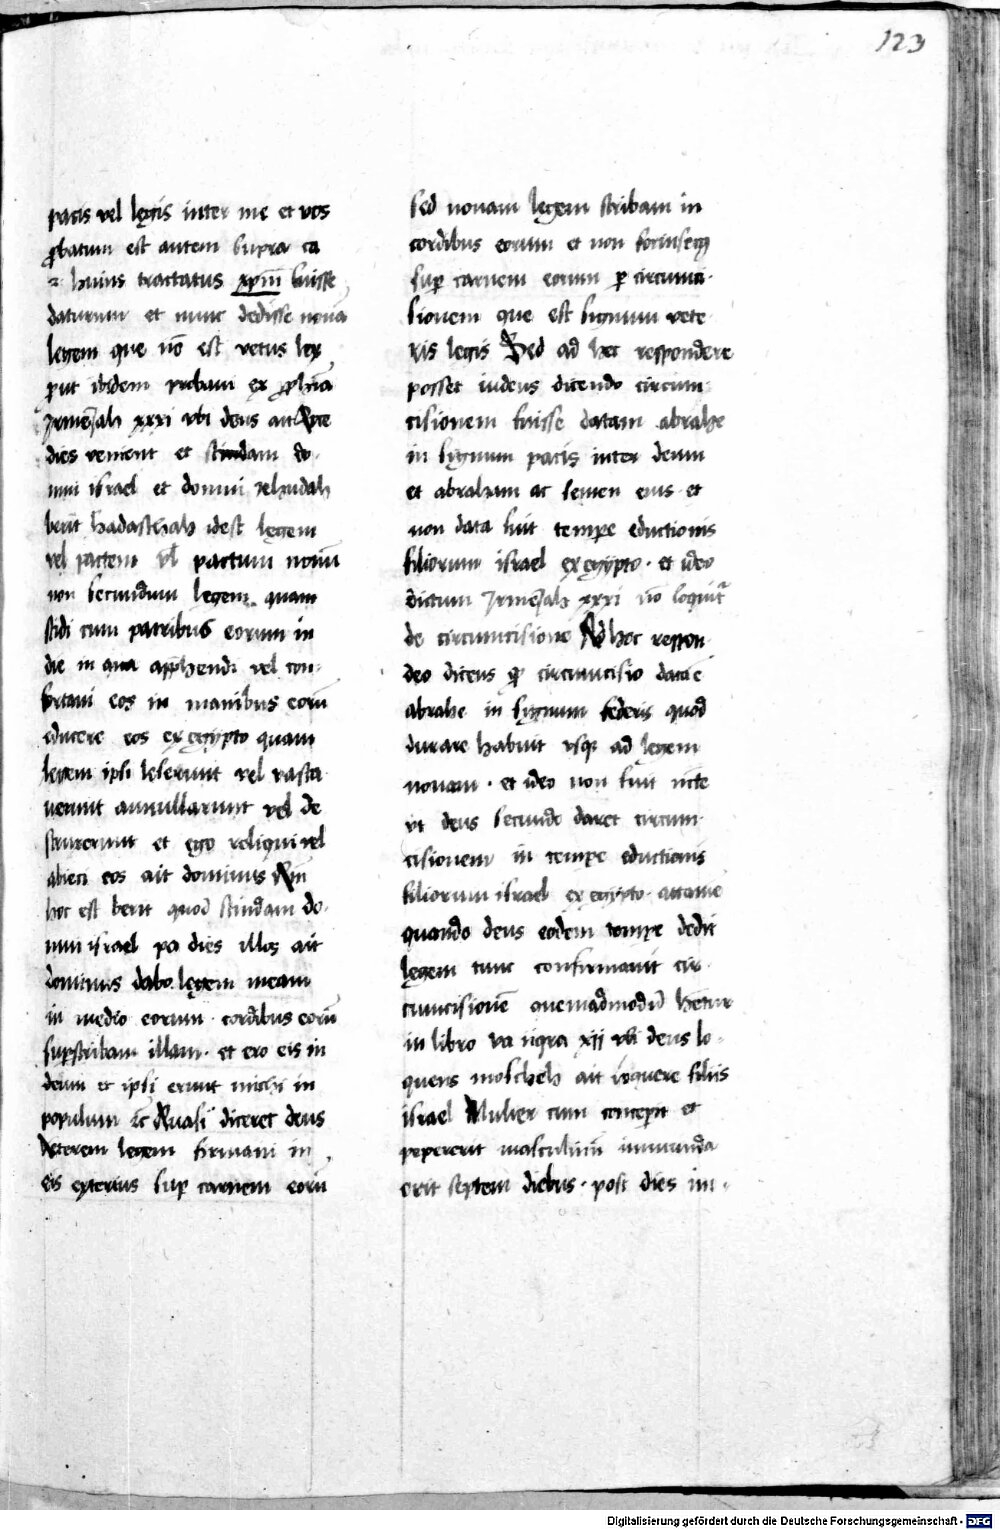 123
pacis vel legis inter me et vos
ꝓbatum est autem supra ca
2 huius tractatus xpm̄ fuisse
daturum et nunc dedisse nouā
legem que nō est vetus lex
ꝓut ibidem probaui ex ꝓphīa
Jrmeiah xxxi vbi deus ait Ecce
dies venient et scindam do
mui israel et domui Jehudah
berit hadaschah idest legem
vel pactem vl̄ pactum nouū
non secundum legem quam
scidi cum patribus eorum in
die in qua app̄hendi vel con
fortaui eos in manibus eorū
educere eos ex egypto quam
legem ipsi leserunt vel vasta
uerunt annullarunt vel de
struxerunt et ego reliqui vel
abieci eos ait dominus
hoc est berit quod scindam do
mui israel po dies illos ait
dominus dabo legem meam
in medio eorum cordibus eorū
supscribam illam et ero eis in
deum et ipsi erunt michi in
populum ⁊c̄ Quasi diceret deus
veterem legem firmaui in
eis exterius sup carnem eorū
sed nouam legem scribam in
cordibus eorum et non forinsecꝫ
sup carnem eorum ꝑ circumci
sionem que est signum vete
ris legis Sed ad hec respondere
posset iudeus dicendo circum
cisionem fuisse datam abrahe
in signum pacis inter deum
et abraham ac semen eius et
non data fuit tempe eductionis
filiorum israel ex egypto et ideo
dictum Jrmeiah xxxi nō loquitᷓ
de circumcisione Ad hec respon
deo dicens ꝙ circumcisio data ē
abrahe in signum federis quod
durare habuit vsqꝫ ad legem
nouam et ideo non fuit ncē
vt deus secundo daret circum
cisionem in tempe eductionis
filiorum israel ex egypto attamē
quando deus eodem tempe dedit
legem tunc confirmauit cir
cumcisionē quemadmodū hetur
in libro va iiqra xij vbi deus lo
quens moscheh ait loquere filiis
israel Mulier cum conceperit et
pepererit masculinū immunda
erit septem diebus post dies im
Digitalisierung gefördert durch die Deutsche Forschungsgemeinschaft - DFG